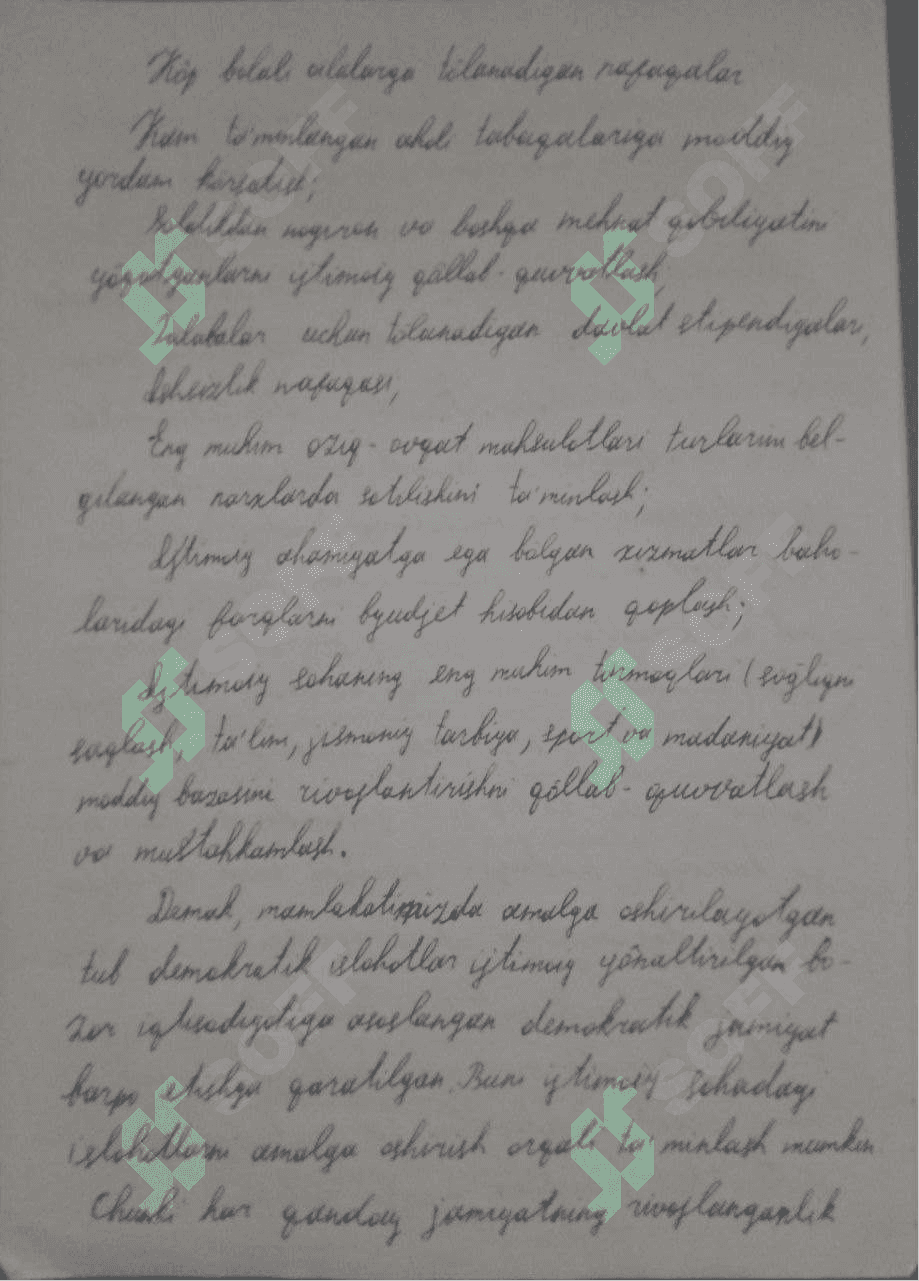 Kõp bolali oilalarga tõlanadigan nafaqalar
Kam ta'minlangan aholi tabaqalariga moddiy
yordam kõrsatish;
Bolalikdan nogiron va boshqa mehnat qobiliyatini
yõqotganlarni ijtimoiy qõllab-quvvatlash,
Talabalar uchun tõlanadigan davlat stipendiyalari,
Ishsizlik nafaqasi,
Eng muhim oziq-ovqat mahsulotlari turlarini bel-
gilangan narxlarda sotilishini ta'minlash;
Ijtimoiy ahamiyatga ega bõlgan xizmatlar baho-
laridagi farqlarni byudjet hisobidan qoplash;
Ijtimoiy sohaning eng muhim tarmoqlari (sogʻliqni
saqlash, ta'lim, jismoniy tarbiya, sport va madaniyat)
moddiy bazasini rivojlantirishni qõllab-quvvatlash
va mustahkamlash.
Demak, mamlakatimizda amalga oshirilayotgan
tub demokratik islohotlar ijtimoiy yõnaltirilgan bo-
zor iqtisodiyotiga asoslangan demokratik jamiyat
barpo etishga qaratilgan. Buni ijtimoiy sohadagi
islohotlarni amalga oshirish orqali ta'minlash mumkin
Chunki har qanday jamiyatning rivojlanganlik
SOFF
SOFF
SOFF
SOFF
SOFF
SOFF